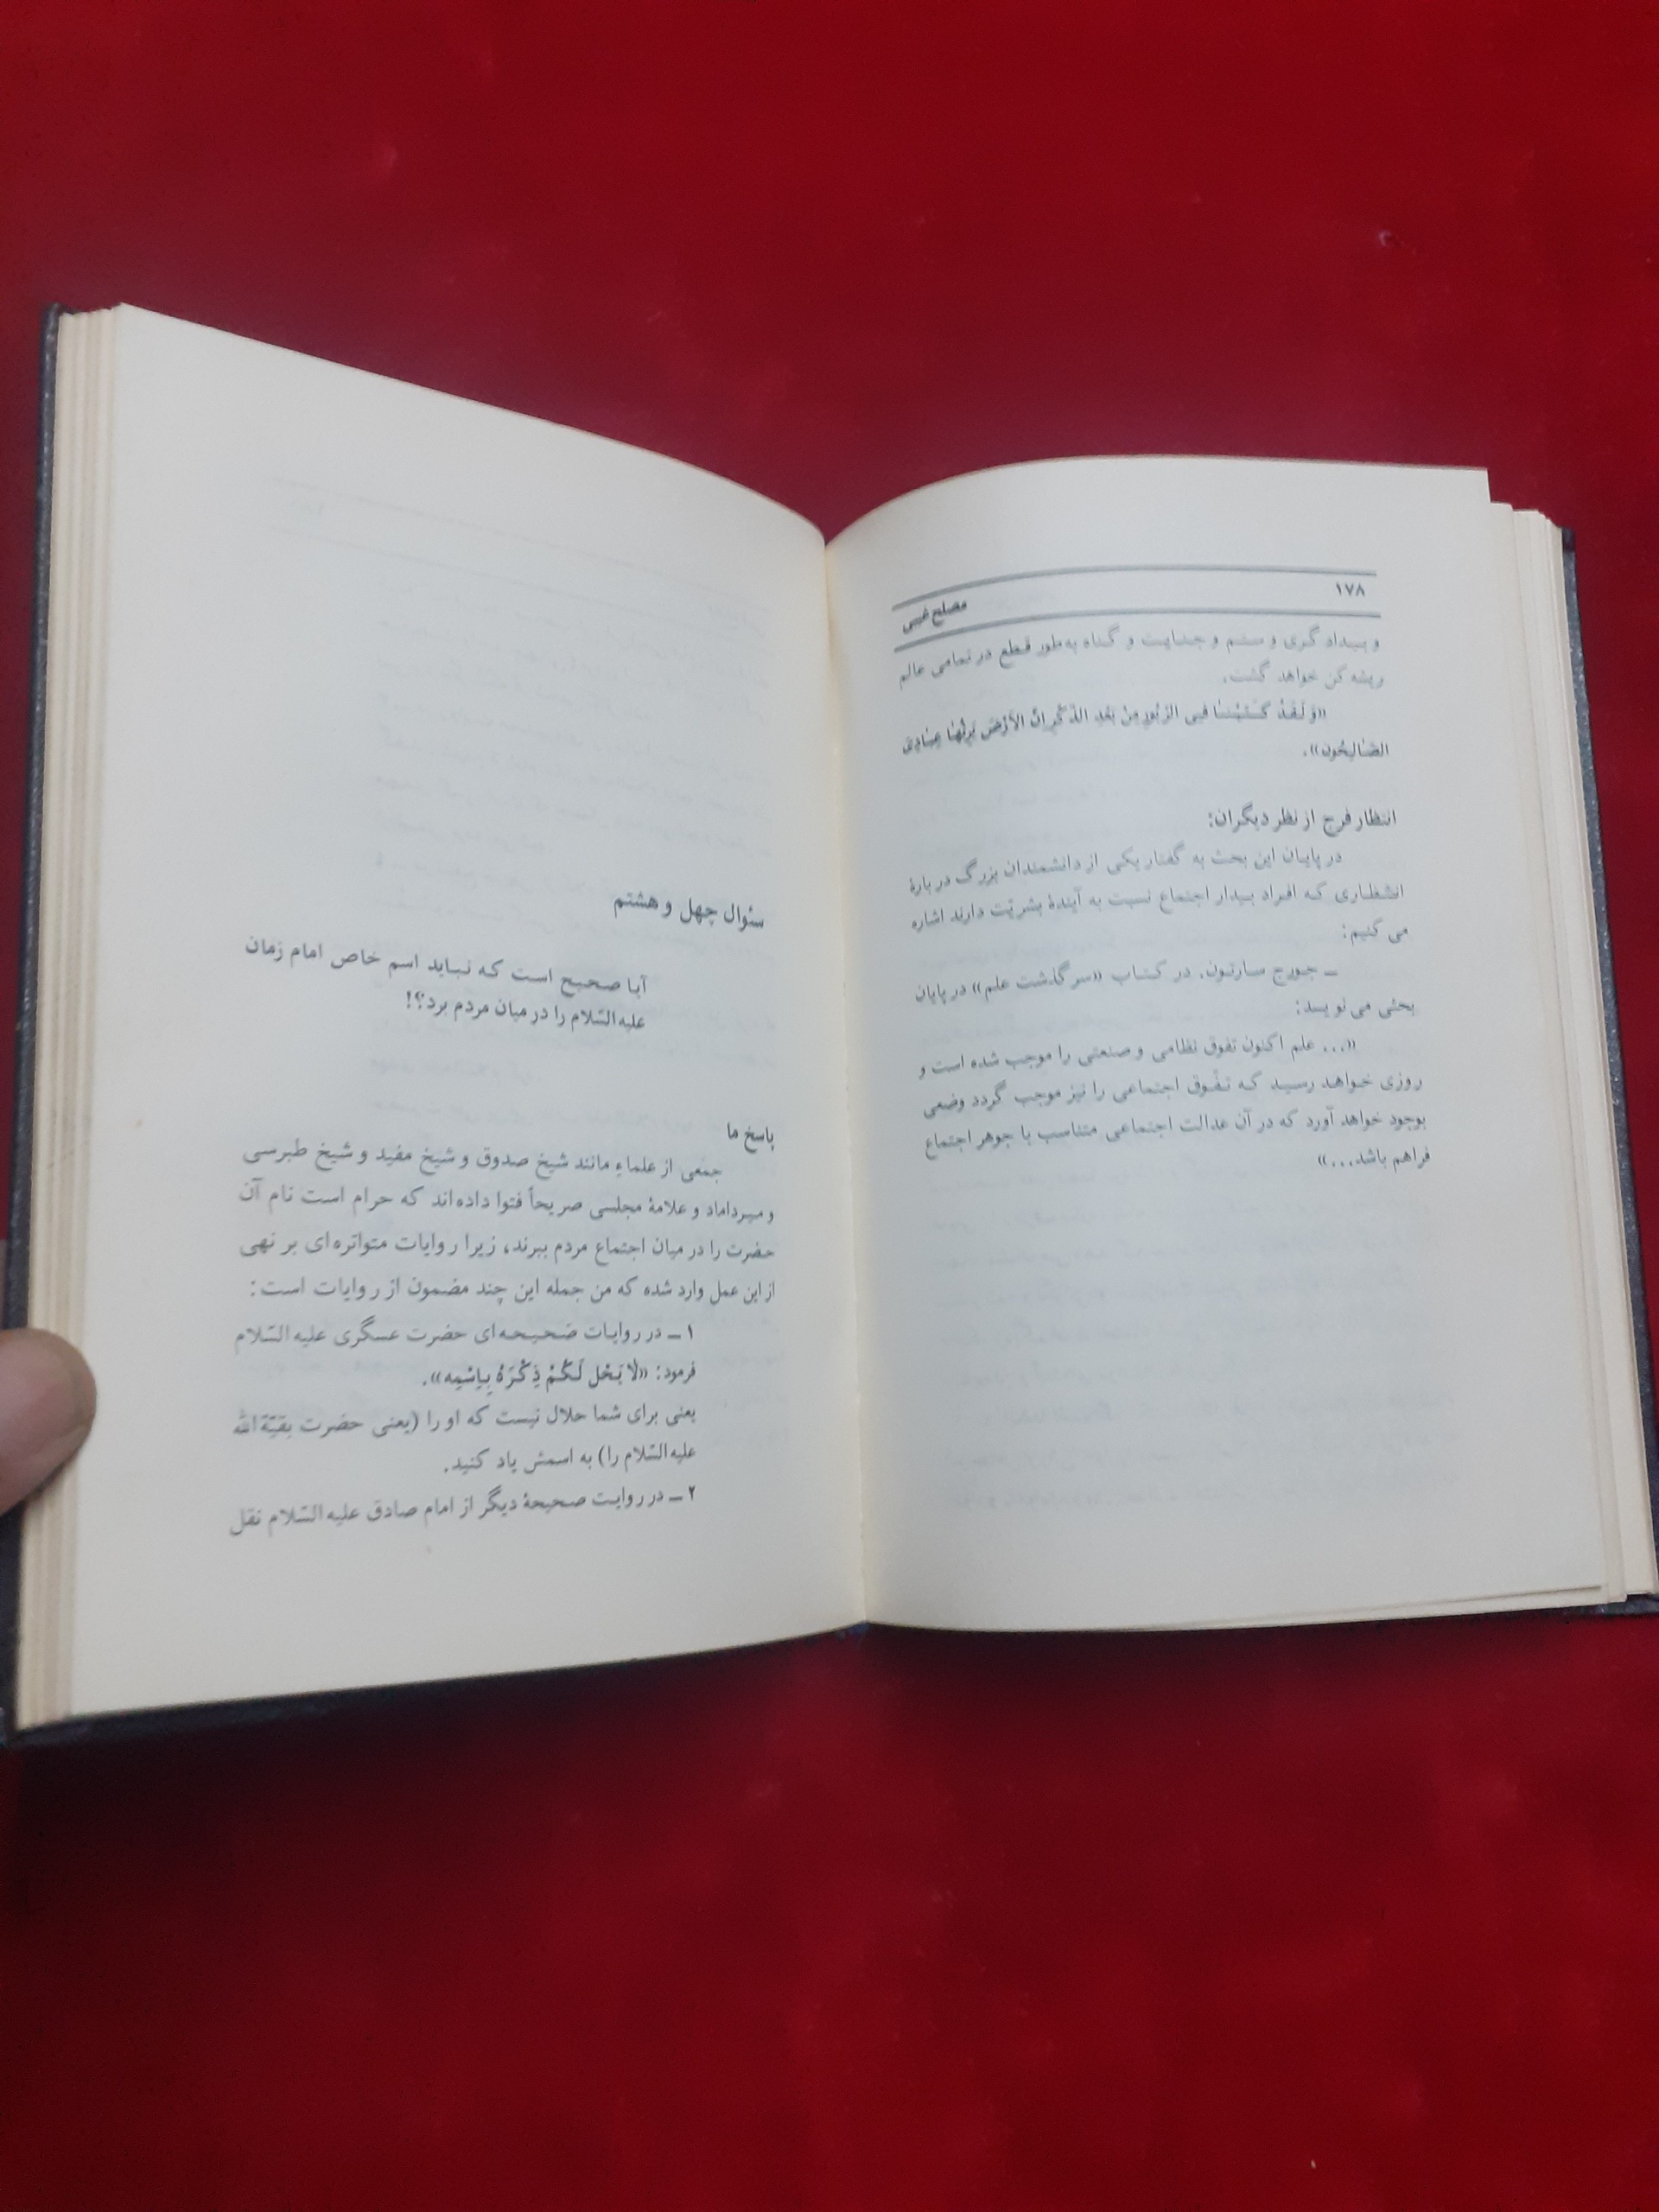 ۱۷۸
مصلح غیبی
و بیدادگری و ستم و جنایت و گناه به طور قطع در تمامی عالم
ریشه کن خواهد گشت.
«وَلَقَدْ کَتَبْنٰا فِی الزَّبُورِ مِنْ بَعْدِ الذِّکْرِ اَنَّ الاَرْضَ یَرِثُهٰا عِبٰادِیَ
الصّٰالِحُون».
انتظار فرج از نظر دیگران:
در پایان این بحث به گفتار یکی از دانشمندان بزرگ دربارهٔ
انتظاری که افراد بیدار اجتماع نسبت به آیندهٔ بشریّت دارند اشاره
می کنیم:
ــ جورج سارتون، در کتاب «سرگذشت علم» در پایان
بحثی می نویسد:
«... علم اکنون تفوق نظامی و صنعتی را موجب شده است و
روزی خواهد رسید که تفّوق اجتماعی را نیز موجب گردد وضعی
بوجود خواهد آورد که در آن عدالت اجتماعی متناسب با جوهر اجتماع
فراهم باشد...»
سئوال چهل و هشتم
آیا صحیح است که نباید اسم خاص امام زمان
علیه السّلام را در میان مردم برد؟!
پاسخ ما
جمعی از علماء مانند شیخ صدوق و شیخ مفید و شیخ طبرسی
و میرداماد و علامهٔ مجلسی صریحاً فتوا داده اند که حرام است نام آن
حضرت را در میان اجتماع مردم ببرند، زیرا روایات متواتره ای بر نهی
از این عمل وارد شده که من جمله این چند مضمون از روایات است:
۱ــ در روایات صَحیحه ای حضرت عسگری علیه السّلام
فرمود: «لٰا یَحْل لَکُمْ ذِکْرَهُ بِاِسْمِه».
یعنی برای شما حلال نیست که او را (یعنی حضرت بقیّة الله
علیه السّلام را) به اسمش یاد کنید.
۲ــ در روایت صحیحهٔ دیگر از امام صادق علیه السّلام نقل